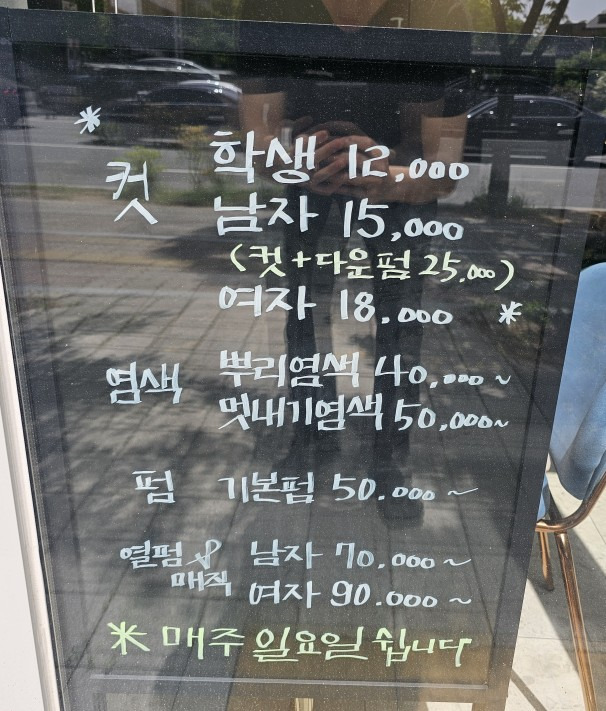 * 컷 학생 12,000
남자 15,000
(컷+다운펌 25,000)
여자 18,000 *
염색 뿌리염색 40,000~
멋내기염색 50,000~
펌 기본펌 50.000~
열펌& 남자 70,000~
매직 여자 90.000~
* 매주 일요일 쉽니다